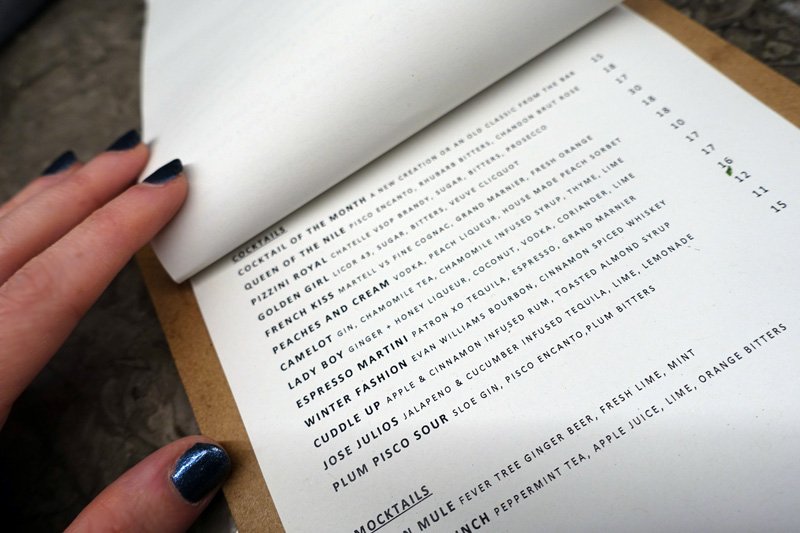 COCKTAILS
COCKTAIL OF THE MONTH A NEW CREATION OR AN OLD CLASSIC FROM THE BAR 15
QUEEN OF THE NILE PISCO ENCANTO, RHUBARB BITTERS, CHANDON BRUT ROSE 18
PIZZINI ROYAL CHATELLE VSOP BRANDY, SUGAR, BITTERS, PROSECCO 17
GOLDEN GIRL LICOR 43, SUGAR, BITTERS, VEUVE CLICQUOT 30
FRENCH KISS MARTELL VS FINE COGNAC, GRAND MARNIER, FRESH ORANGE 18
PEACHES AND CREAM VODKA, PEACH LIQUEUR, HOUSE MADE PEACH SORBET 18
CAMELOT GIN, CHAMOMILE TEA, CHAMOMILE INFUSED SYRUP, THYME, LIME 10
LADY BOY GINGER + HONEY LIQUEUR, COCONUT, VODKA, CORIANDER, LIME 17
ESPRESSO MARTINI PATRON XO TEQUILA, ESPRESSO, GRAND MARNIER 17
WINTER FASHION EVAN WILLIAMS BOURBON, CINNAMON SPICED WHISKEY 16
CUDDLE UP APPLE & CINNAMON INFUSED RUM, TOASTED ALMOND SYRUP 12
JOSE JULIOS JALAPENO & CUCUMBER INFUSED TEQUILA, LIME, LEMONADE 11
PLUM PISCO SOUR SLOE GIN, PISCO ENCANTO,PLUM BITTERS 15
MOCKTAILS
MULE FEVER TREE GINGER BEER, FRESH LIME, MINT
PEPPERMINT TEA, APPLE JUICE, LIME, ORANGE BITTERS